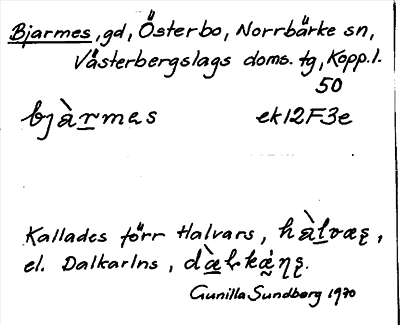 Bjarmes, gd, Österbo, Norrbärke sn,
Västerbergslags doms. tg, Kopp. l.
50
bjàrmes ek12F3e
Kallades förr Halvars, hàlvaʂ,
el. Dalkarlns,
Gunilla Sundberg 1970